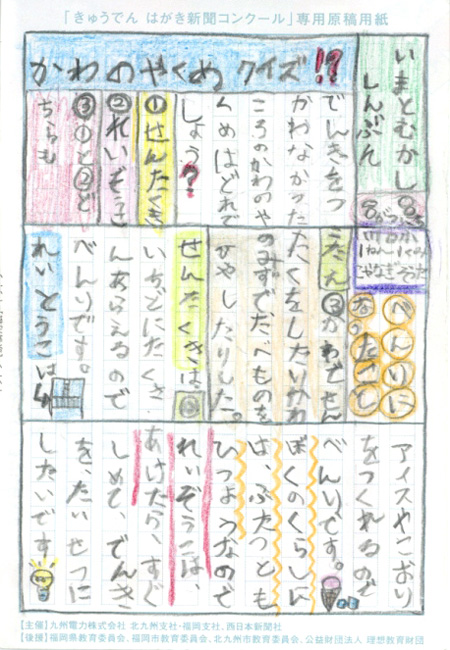 「きゅうでん はがき新聞コンクール」専用原稿用紙
いまとむかし
しんぶん
かわのやくめ クイズ⁉
でんきをつ
かわなかった
ころのかわのや
くめはどれで
しょう?
①せんたくき
②れいぞうこ
③①と②ど
ちらも
べんりに
なったこと
こたえ③かわでせん
たくをしたりかわ
のみずでたべものを
ひやしたりした。
せんたくきは
いちどにたくさ
んあらえるので
べんりです。
れいとうこは
アイスやこおり
をつくれるので
べんりです。
ぼくのくらしに
は、ふたつとも
ひつようなので
れいぞうこは、
あけたら、すぐ
しめて、でんき
を、たいせつに
したいです
【主催】九州電力株式会社 北九州支社・福岡支社、西日本新聞社
【後援】福岡県教育委員会、福岡市教育委員会、北九州市教育委員会、公益財団法人 理想教育財団